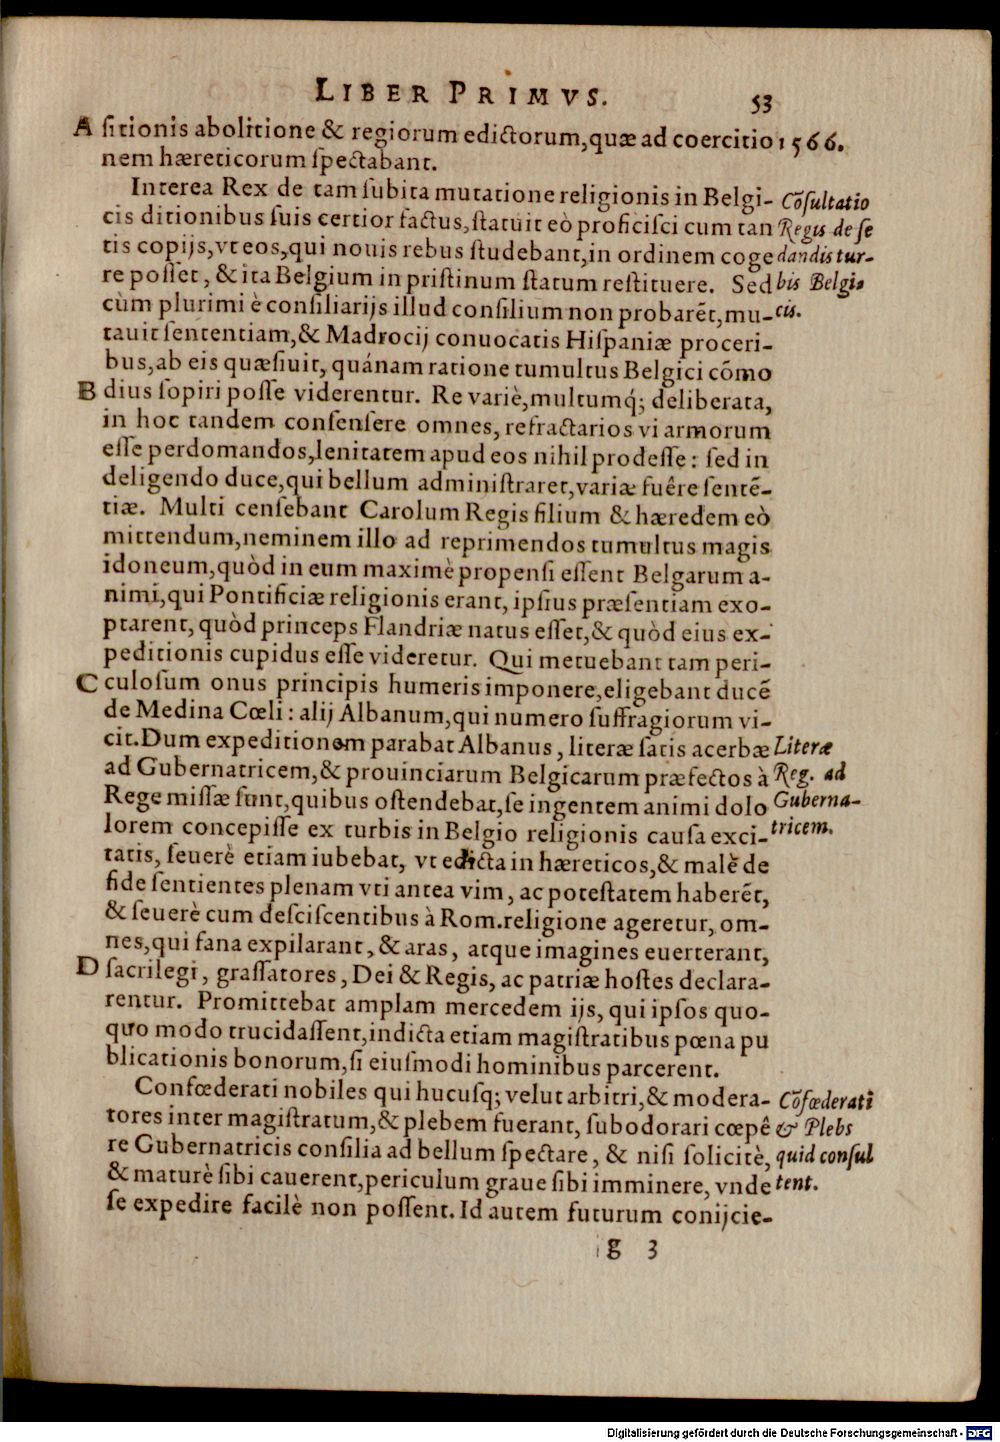 LIBER PRIMVS. 53
A ſitionis abolitione & regiorum edictorum,quæ ad coercitio 1566.
nem hæreticorum ſpectabant.
Interea Rex de tam ſubita mutatione religionis in Belgi- Cõſultatio
cis ditionibus ſuis certior factus,ſtatuit eò proficiſci cum tan Regis de ſe
tis copijs,vt eos,qui nouis rebus ſtudebant,in ordinem coge dandis tur-
re poſſet, & ita Belgium in priſtinum ſtatum reſtituere. Sed bis Belgi-
cùm plurimi è conſiliarijs illud conſilium non probarẽt,mu- cis.
tauit ſententiam,& Madrocij conuocatis Hiſpaniæ proceri-
bus,ab eis quæſiuit, quánam ratione tumultus Belgici cõmo
B dius ſopiri poſſe viderentur. Re variè,multumq́; deliberata,
in hoc tandem conſenſere omnes, refractarios vi armorum
eſſe perdomandos,lenitatem apud eos nihil prodeſſe: ſed in
deligendo duce,qui bellum adminiſtraret,variæ fuêre ſentẽ-
tiæ. Multi cenſebant Carolum Regis filium & hæredem eò
mittendum,neminem illo ad reprimendos tumultus magis
idoneum,quòd in eum maximè propenſi eſſent Belgarum a-
nimi,qui Pontificiæ religionis erant, ipſius præſentiam exo-
ptarent, quòd princeps Flandriæ natus eſſet,& quòd eius ex-
peditionis cupidus eſſe videretur. Qui metuebant tam peri-
C culoſum onus principis humeris imponere,eligebant ducẽ
de Medina Cœli: alij Albanum,qui numero ſuffragiorum vi-
cit.Dum expeditionem parabat Albanus, literæ ſatis acerbæ Literæ
ad Gubernatricem,& prouinciarum Belgicarum præfectos à Reg. ad
Rege miſſæ ſunt,quibus oſtendebat,ſe ingentem animi dolo Guberna-
lorem concepiſſe ex turbis in Belgio religionis cauſa exci- tricem.
tatis, ſeuerè etiam iubebat, vt edicta in hæreticos,& malè de
fide ſentientes plenam vti antea vim, ac poteſtatem haberẽt,
& ſeuerè cum deſciſcentibus à Rom.religione ageretur, om-
nes,qui fana expilarant, & aras, atque imagines euerterant,
D ſacrilegi, graſſatores, Dei & Regis, ac patriæ hoſtes declara-
rentur. Promittebat amplam mercedem ijs, qui ipſos quo-
quo modo trucidaſſent,indicta etiam magiſtratibus pœna pu
blicationis bonorum,ſi eiuſmodi hominibus parcerent.
Confœderati nobiles qui hucuſq; velut arbitri,& modera- Cõfœderati
tores inter magiſtratum,& plebem fuerant, ſubodorari cœpê & Plebs
re Gubernatricis conſilia ad bellum ſpectare, & niſi ſolicitè, quid conſul
& maturè ſibi cauerent,periculum graue ſibi imminere, vnde tent.
ſe expedire facilè non poſſent. Id autem futurum conijcie-
g 3
Digitalisierung gefördert durch die Deutsche Forschungsgemeinschaft - DFG